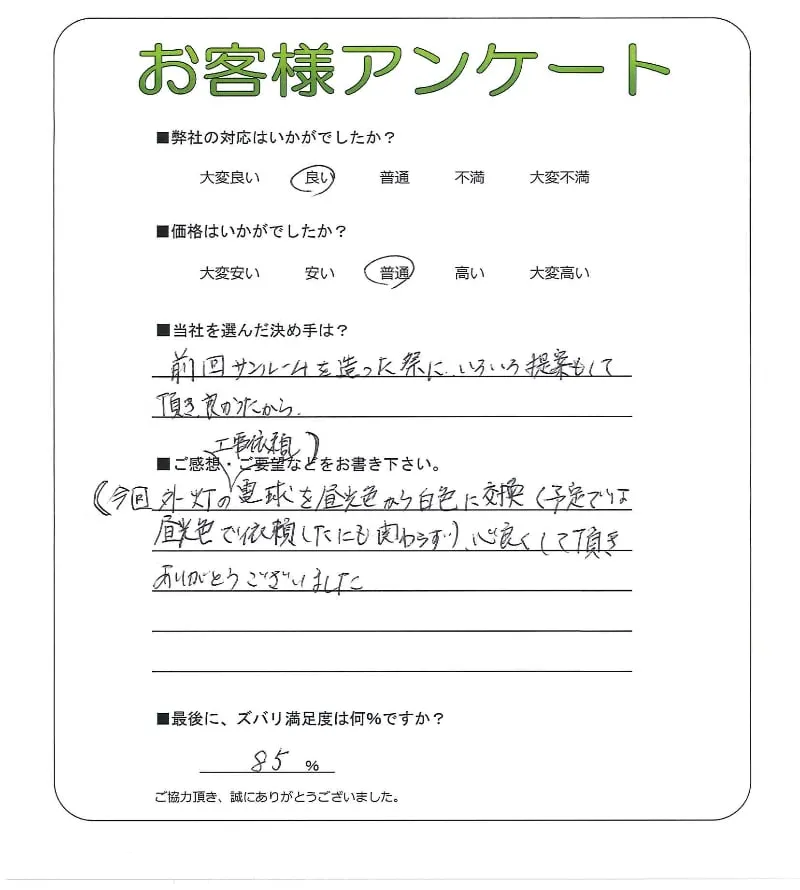 お客様アンケート
■弊社の対応はいかがでしたか？
大変良い 良い 普通 不満 大変不満
■価格はいかがでしたか？
大変安い 安い 普通 高い 大変高い
■当社を選んだ決め手は？
前回サンルームを造った祭に、いろいろ提案もして
頂き良かたから、
■ご感想・ご要望などをお書き下さい。
工事依頼)
(今回 外灯の電球を昼光色から白色に交換(予定では
昼光色で依頼したにも関わらず)、心良くして頂き
ありがとうございました
■最後に、ズバリ満足度は何%ですか？
85 %
ご協力頂き、誠にありがとうございました。